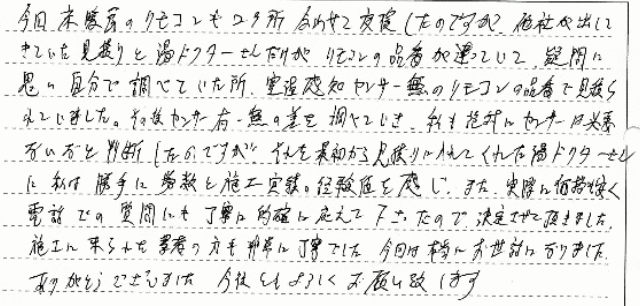 今回床暖房のリモコンも2ヶ所合わせて交換したのですが、他社が出して
きていた見積りと湯ドクターさんだけがリモコンの品番が違っていて、疑問に
思い自分で調べていた所、室温感知センサー無のリモコンの品番で見積ら
れていました。その後センサー有・無の差を調べていき、私も絶対にセンサーは必要
ないなと判断したのですが、それを最初から見積りに入れてくれた湯ドクターさん
に私は勝手に勢力と施工実績の経験値を感じ、また、実際に価格も安く
電話での質問にも丁寧に的確に応えて下さったので決定させて頂きました。
施工に来られた業者の方も非常に丁寧でした。今回は本当にお世話になりました。
ありがとうございました 今後ともよろしくお願い致します